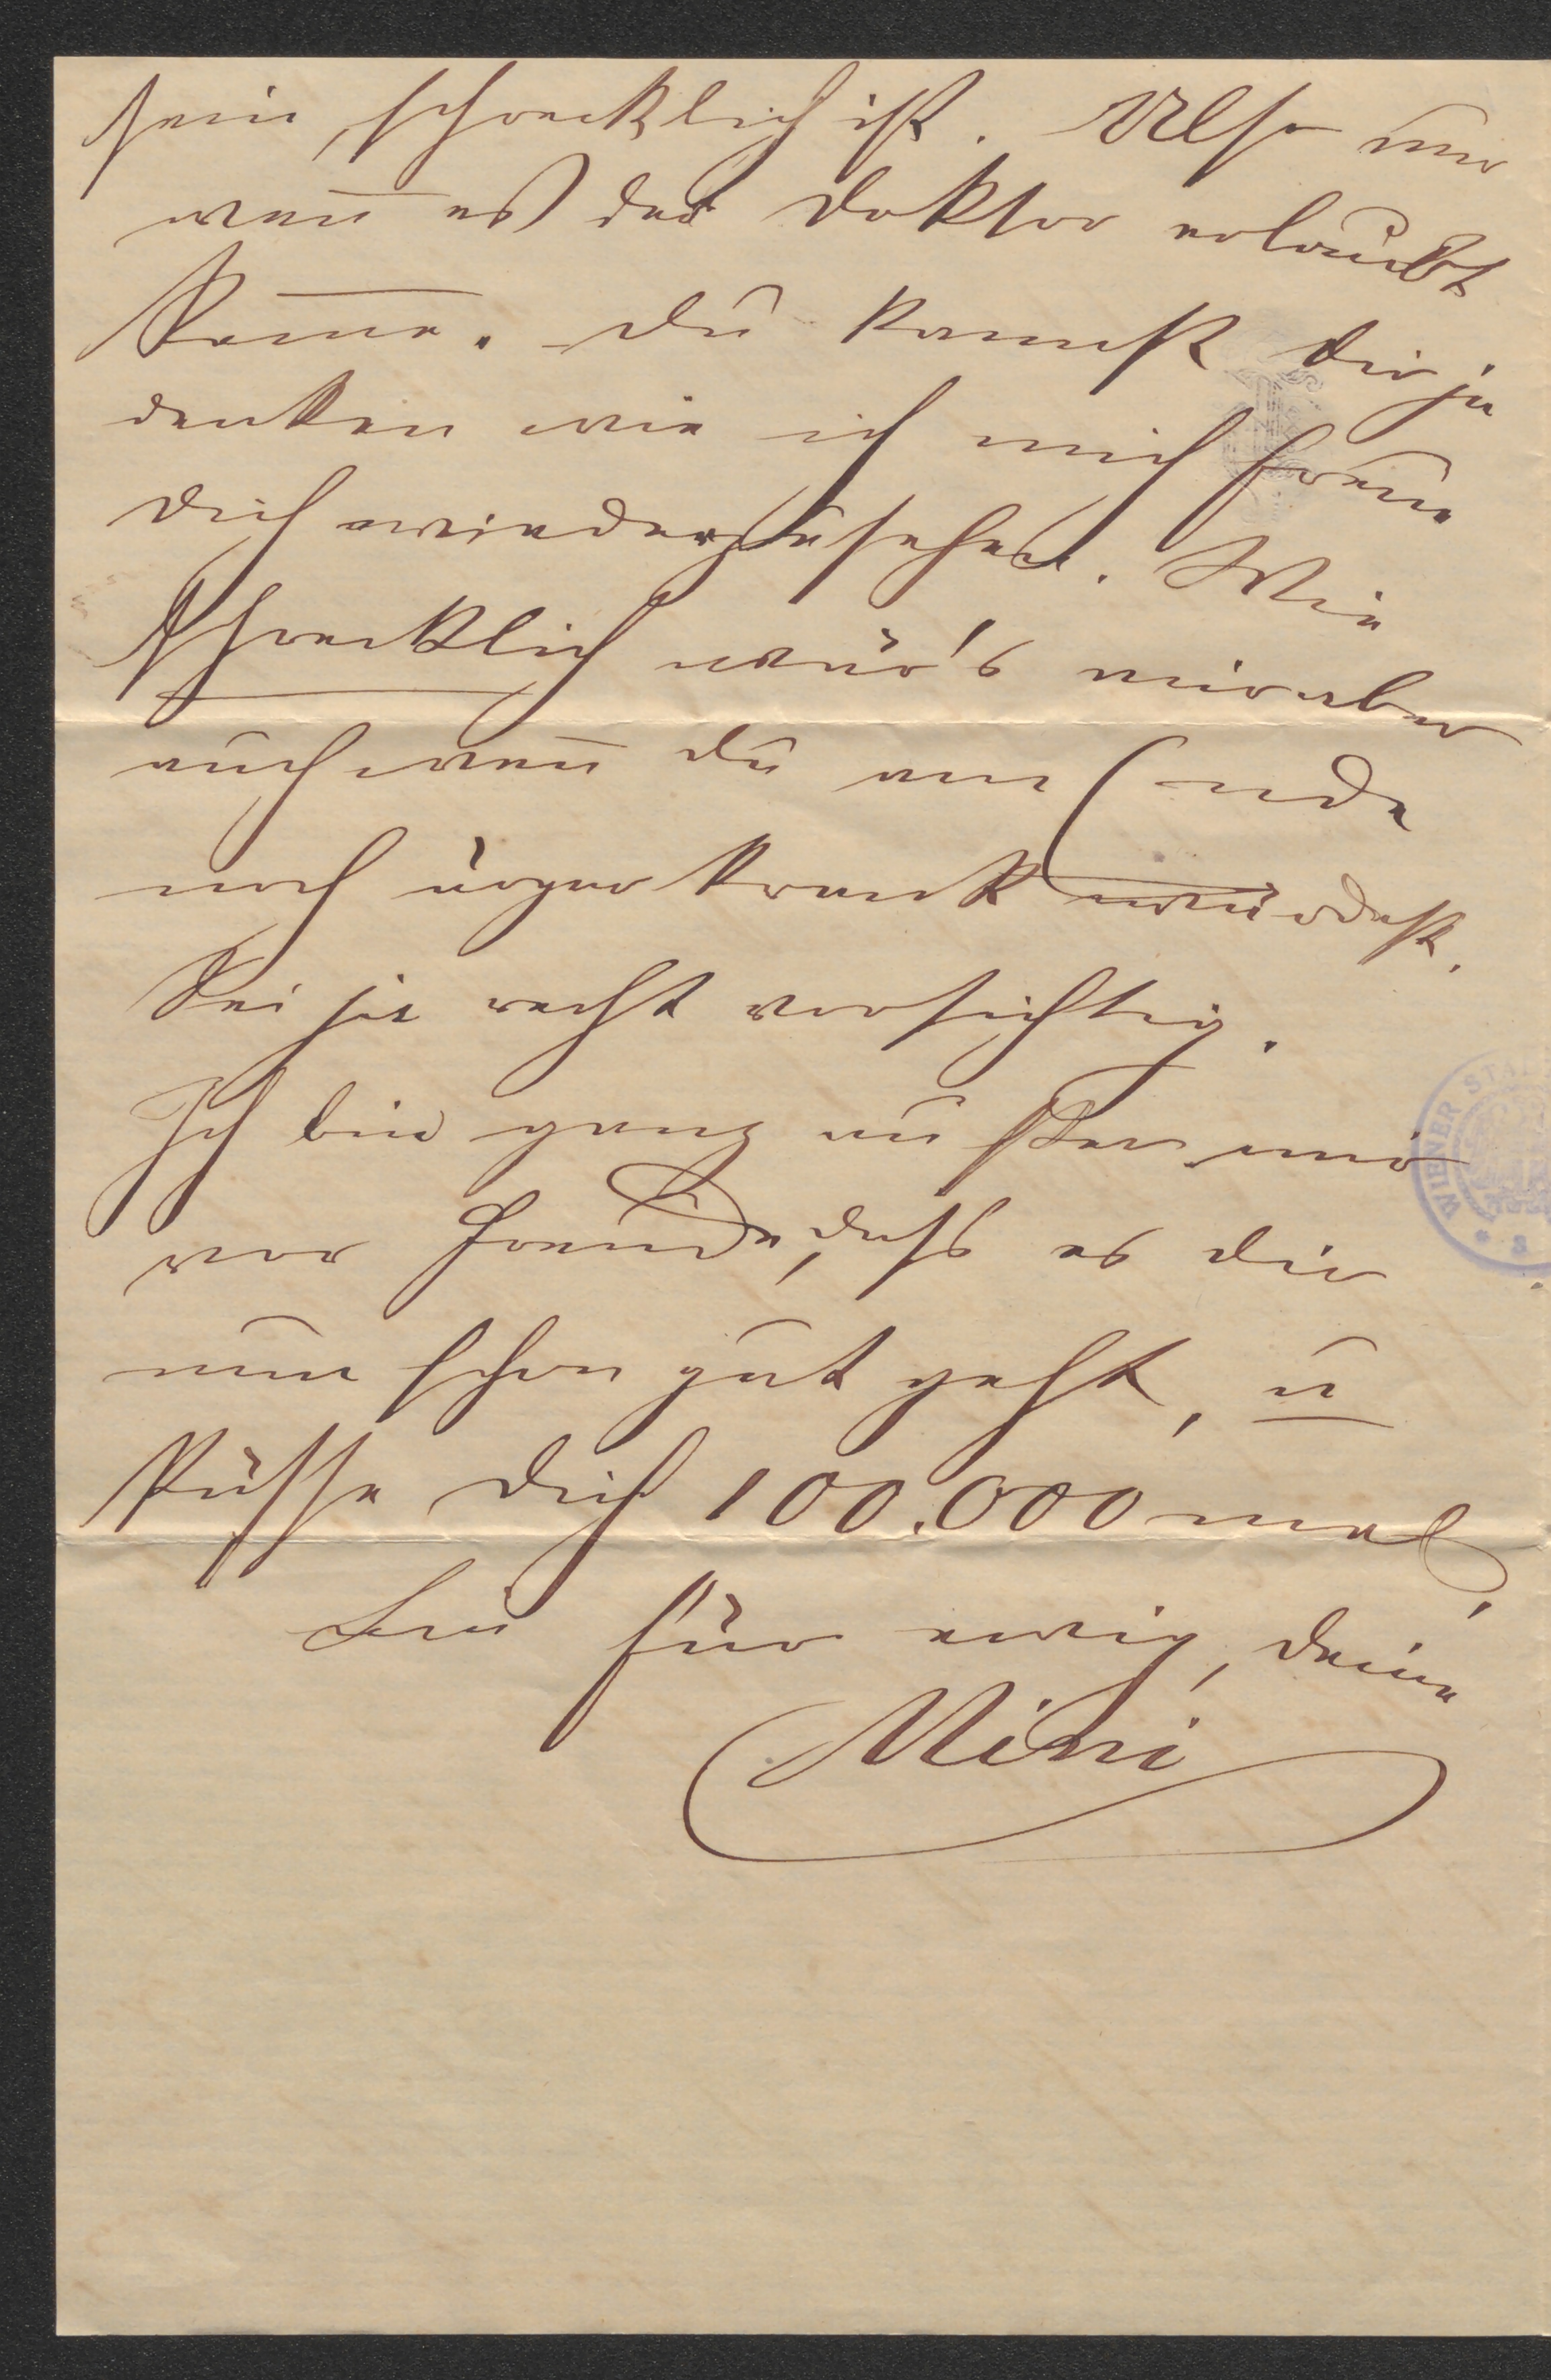 sein, schrecklich ist. Also nur
weñ es der Doktor erlaubt
kom̄e. Du kannst dir ja
denken wie ich mich freue
dich wiederzusehen. Wie
schrecklich wär's mir aber
auch weñ du am Ende
noch ärger krank würdest.
Sei ja recht vorsichtig.
Ich bin ganz ausser mir
vor Freude, dass es dir
nun schon gut geht, u
küsse dich 100.000 mal,
bin für ewig, deine
Mini
WIENER STA